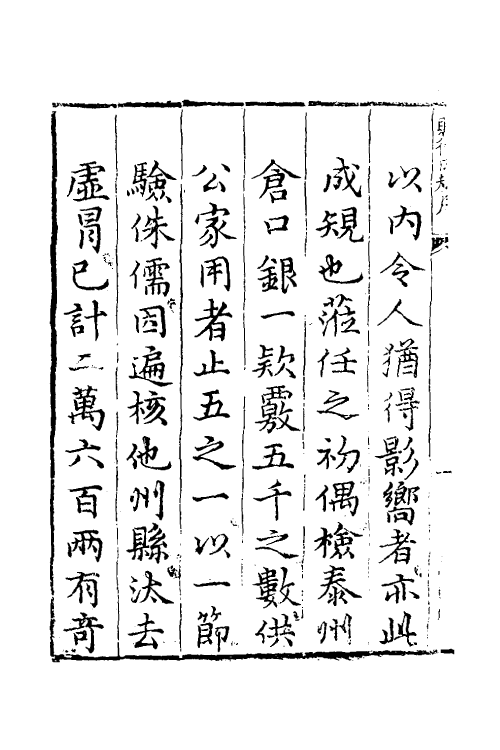 以内令人猶得影嚮者亦此
成規也蒞任之初偶檢泰州
倉口銀一欵覈五千之數供
公家用者止五之一以一節
驗侏儒因遍核他州縣汰去
虛冒已計二萬六百兩有奇